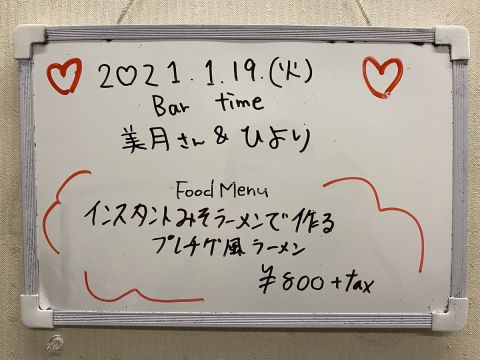 2021.1.19.(火)
Bar time
美月さん & ひより
Food Menu
インスタントみそラーメンで作る
プレチゲ風ラーメン
¥800+tax